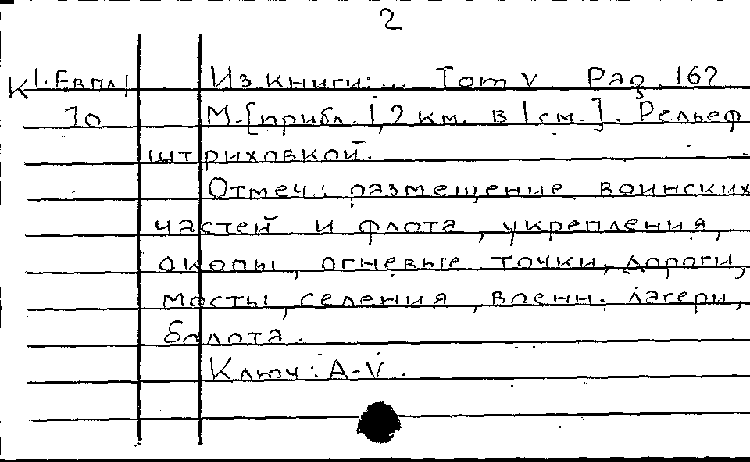 2
К 1-Евпл Из книги: ... Том V Pag. 162
10 М-[прибл. 1,2 км. в 1 см.]. Рельеф
штриховкой.
Отмеч.: размещение воинских
частей и флота, укрепления,
окопы, огневые точки, дороги,
мосты, селения, военн. лагери,
болота.
Ключ: A-V.